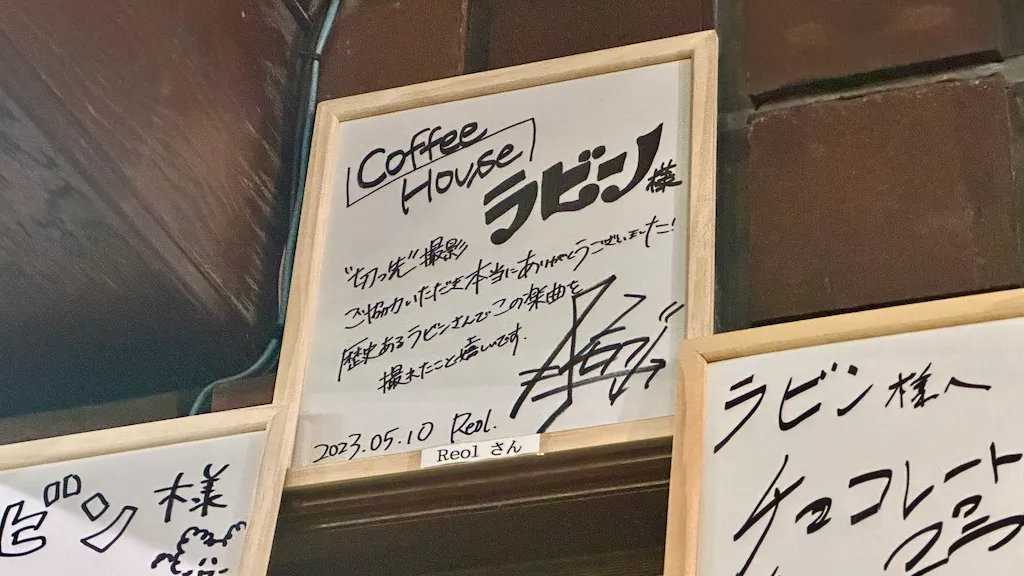 Coffee
House
ラビン様
"切っ先"撮影
ご協力いただき本当にありがとうございました!
歴史あるラビンさんでこの楽曲を
撮れたこと嬉しいです.
2023.05.10 Reol.
Reol さん
ビン様
ラビン様へ
チョコレート